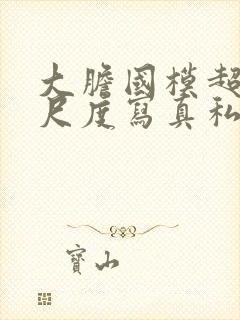 大膽國模超
尺度寫真私
寶山